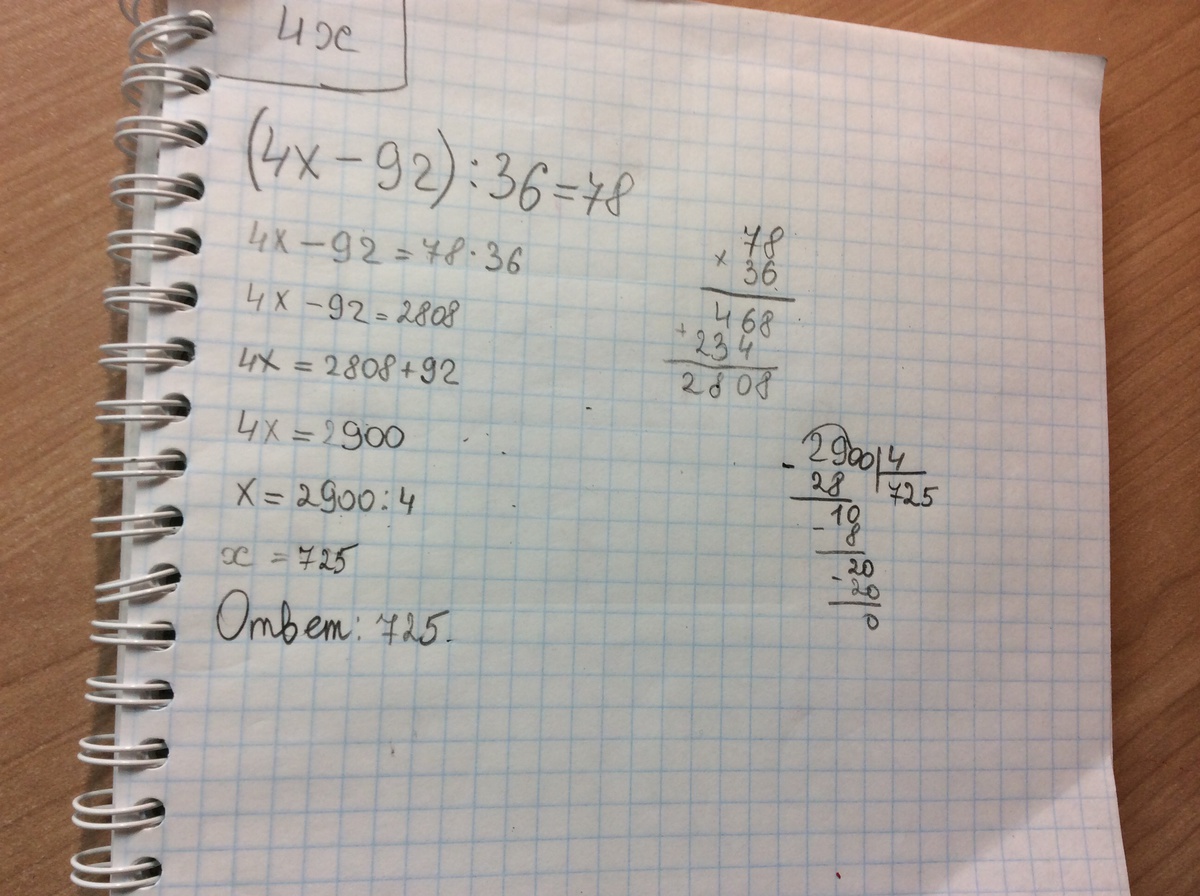 4x
(4x - 92) : 36 = 78
4x - 92 = 78 · 36
4x - 92 = 2808
4x = 2808 + 92
4x = 2900
x = 2900 : 4
x = 725
Ответ: 725.
78
× 36
468
+ 234
2808
- 2900 | 4
28 725
10
- 8
- 20
20
0